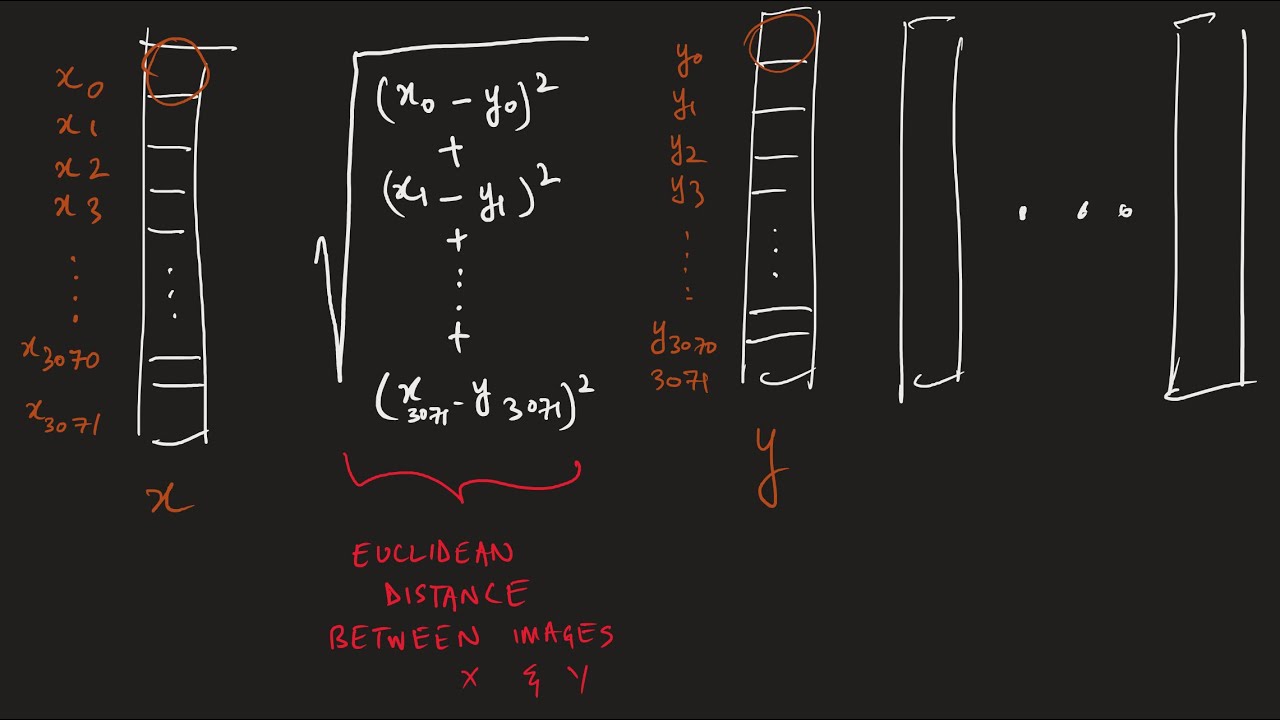 x0
x1
x2
x3
x3070
x3071
x
(x0 - y0)²
+
(x1 - y1)²
+
+
(x3071 - y3071)²
EUCLIDEAN
DISTANCE
BETWEEN IMAGES
X & Y
y0
y1
y2
y3
y3070
3071
y